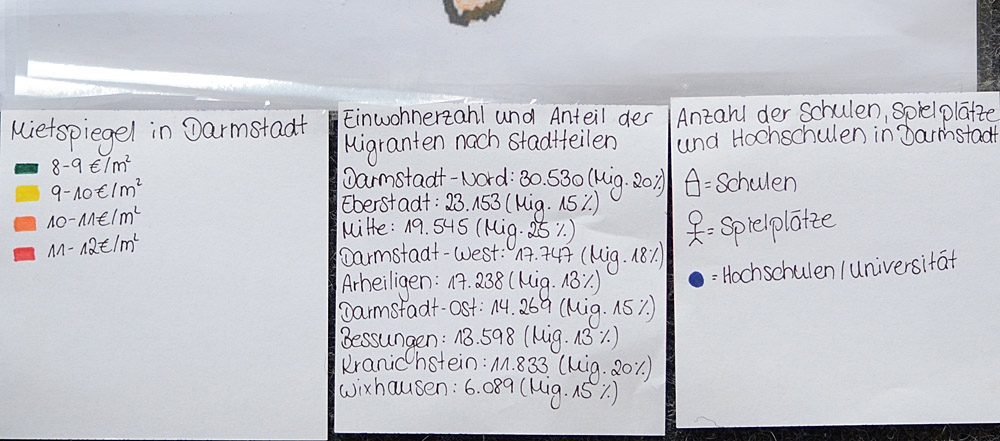 Mietspiegel in Darmstadt
8-9 €/m²
9-10€/m²
10-11€/m²
11-12€/m²
Einwohnerzahl und Anteil der
Migranten nach Stadtteilen
Darmstadt-Nord: 30.530 (Mig. 20%)
Eberstadt: 23.153 (Mig. 15%)
Mitte: 19.545 (Mig. 25%)
Darmstadt-West: 17.747 (Mig. 18%)
Arheiligen: 17.238 (Mig. 13%)
Darmstadt-Ost: 14.269 (Mig. 15%)
Bessungen: 13.598 (Mig. 13%)
Kranichstein: 11.833 (Mig. 20%)
Wixhausen: 6.089 (Mig. 15%)
Anzahl der Schulen, Spielplätze
und Hochschulen in Darmstadt
= Schulen
= Spielplätze
= Hochschulen / Universität